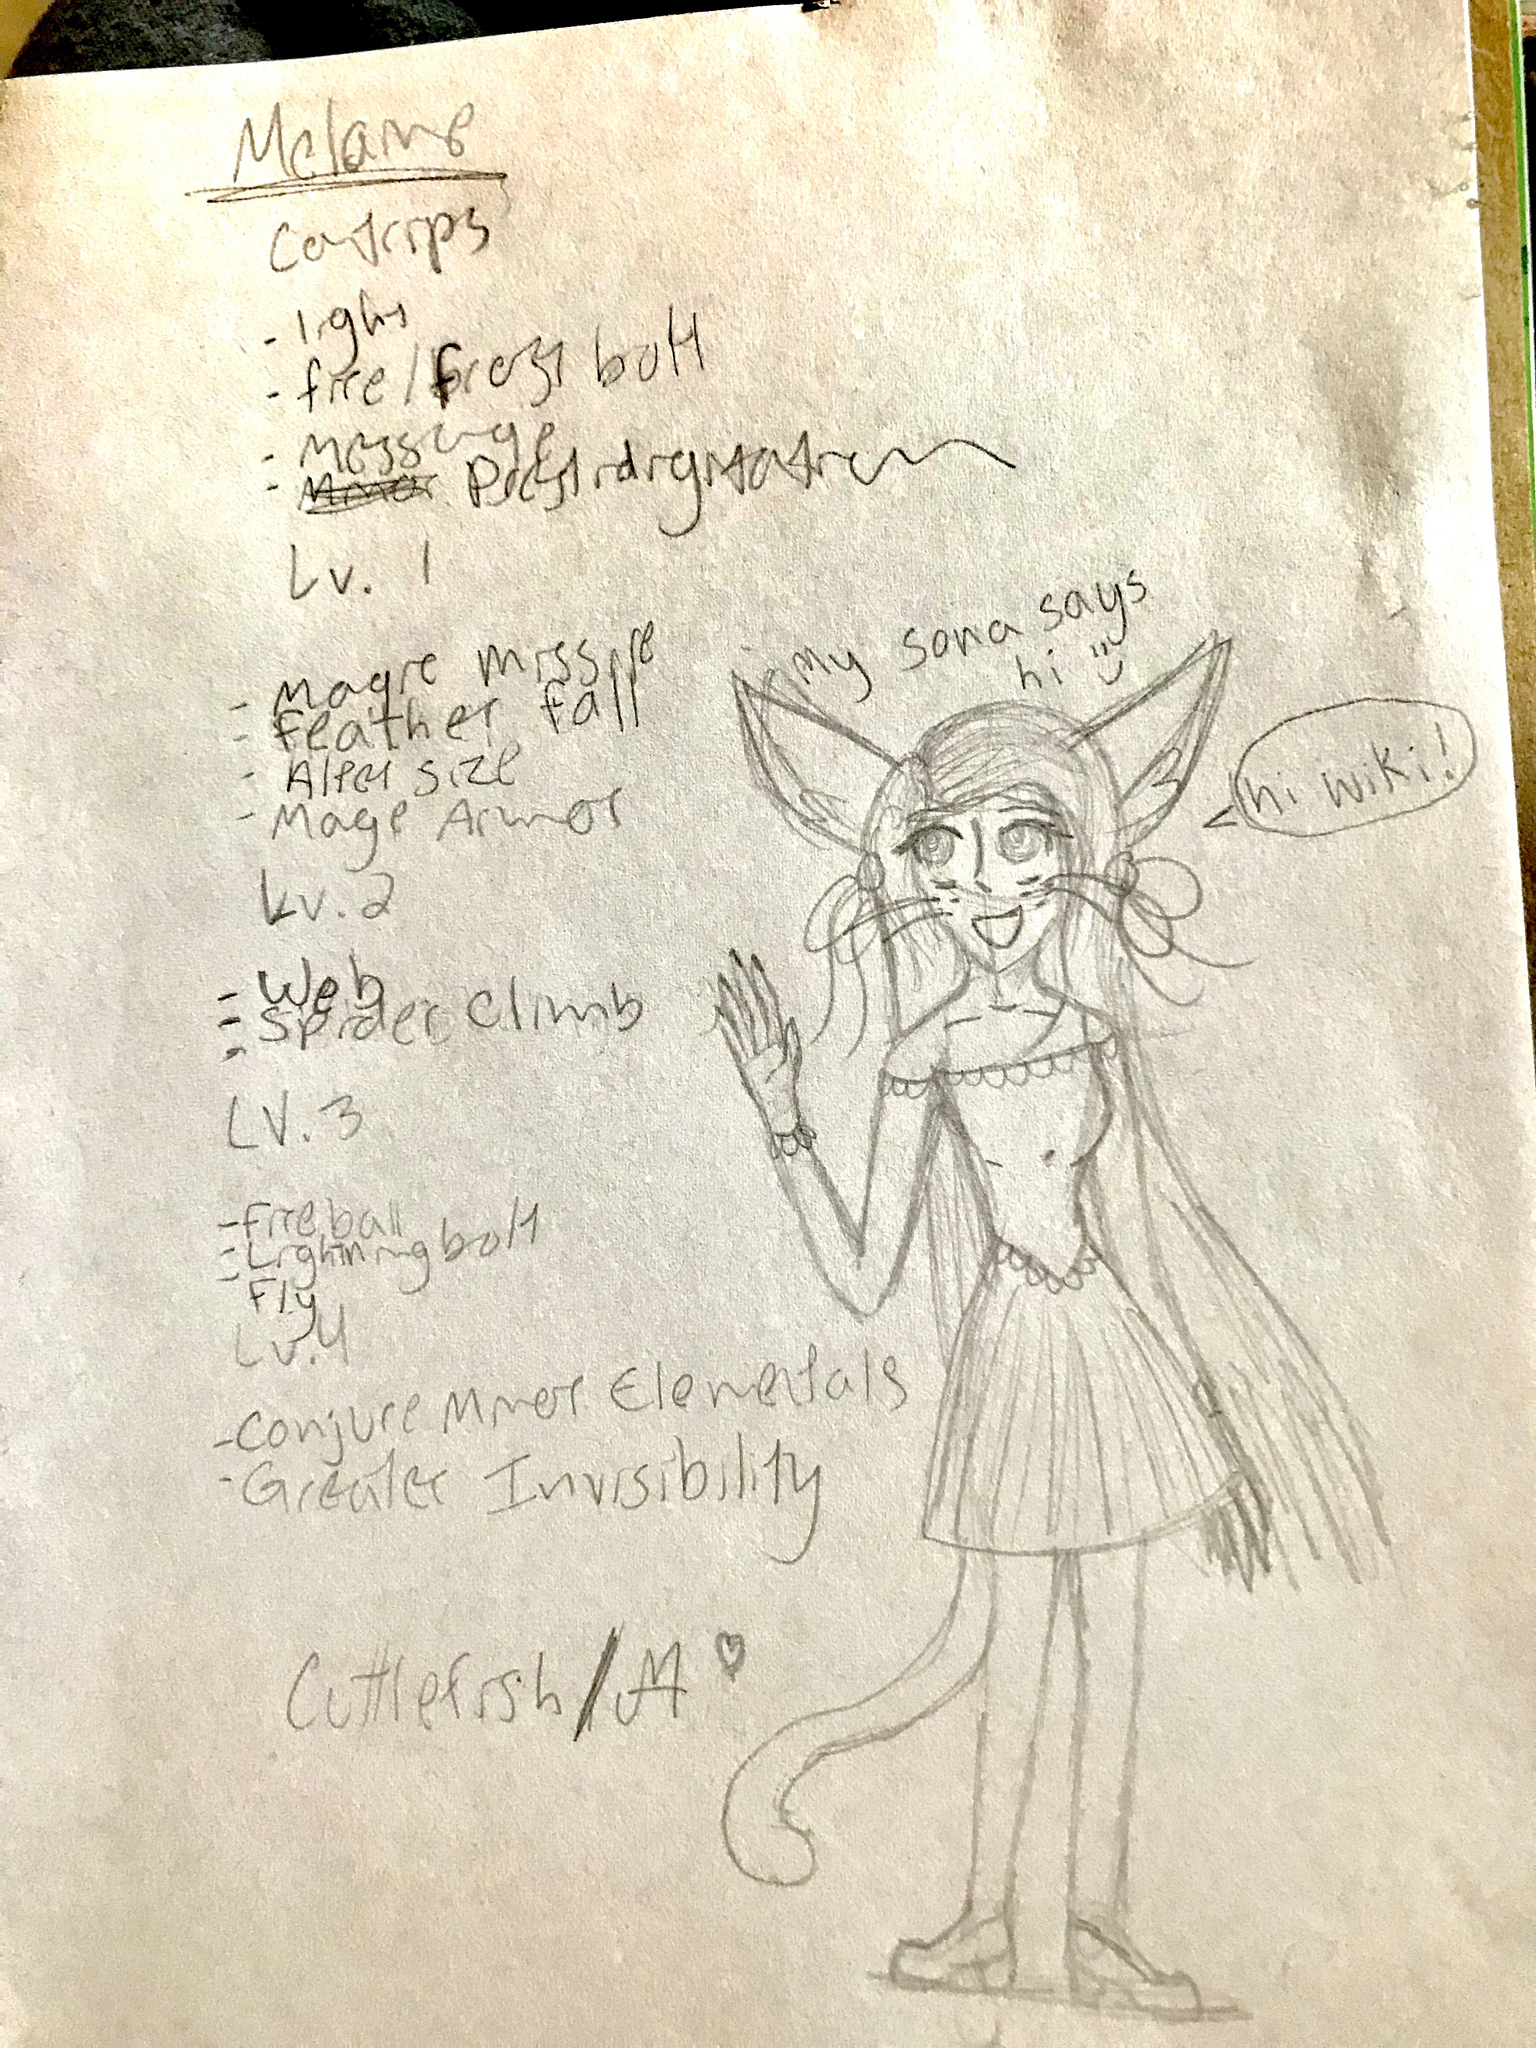 Melanie
Cantrips
- light
- fire/frost bolt
- Message
- Minor Prestidigitation
Lv. 1
- Magic Missile
- Feather fall
- Alter size
- Mage Armor
Lv. 2
- Web
- Spider Climb
-
LV. 3
- Fireball
- Lightning bolt
- Fly
Lv. 4
- Conjure Minor Elementals
- Greater Invisibility
my sona says
hi
hi wiki!
Cuttlefish/M ♡